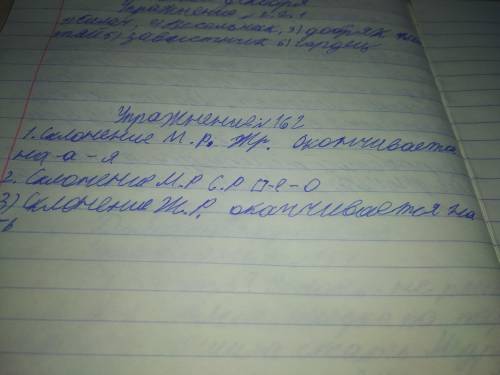 Упражнение
4) 3) добряк
5) завистник 6) гордец
Упражнение 162
1. Склонение М.Р. Ж.р. оканчивается
на -а -я
2. Склонение М.Р С.Р □ -е -о
3) Склонение Ж.Р. оканчивается на
-ь